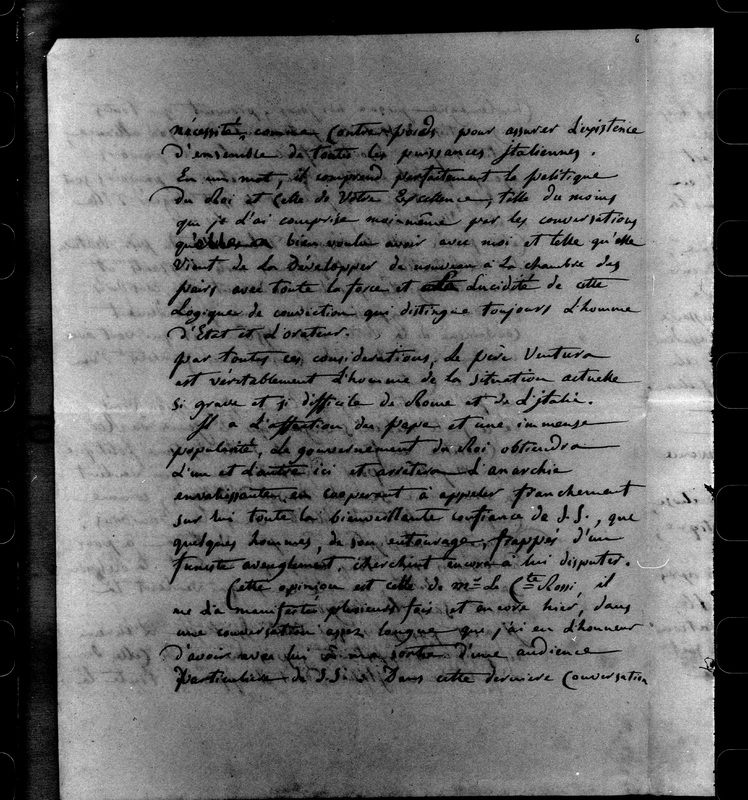 6
nécessité, comme Contre-poids pour assurer l'existence
d'ensemble de toutes les puissances Italiennes.
En un mot, il comprend parfaitement la politique
du Roi et Celle de Votre Excellence, telle du moins
que je l'ai comprise moi-même par les conversations
bien voulu avoir avec moi et telle qu'elle
Vient de la Développer de nouveau à la chambre des
pairs avec toute la force et Lucidité de cette
Logique de conviction qui distingue toujours L'homme
d'Etat et L'orateur.
par toutes ces considérations, Le père Ventura
est véritablement L'homme de la Situation actuelle
Si grave et si difficile de Rome et de L'italie.
Il a L'affection du pape et une immense
popularité, Le gouvernement du Roi obtiendra
L'un et L'autre ici et arrêtera L'anarchie
envahissante, en coopérant à appeler franchement
sur lui toute la bienveillante confiance de S.S., que
quelques hommes, de son entourage, frappés d'un
funeste aveuglement, cherchent encore à lui disputer.
Cette opinion est celle de mr Le Cte Rossi, il
me l'a manifestée plusieurs fois et encore hier, dans
une conversation assez longue que j'ai eu L'honneur
d'avoir avec lui à ma sortie d'une audience
Particulière de S.S. Dans cette dernière Conversation